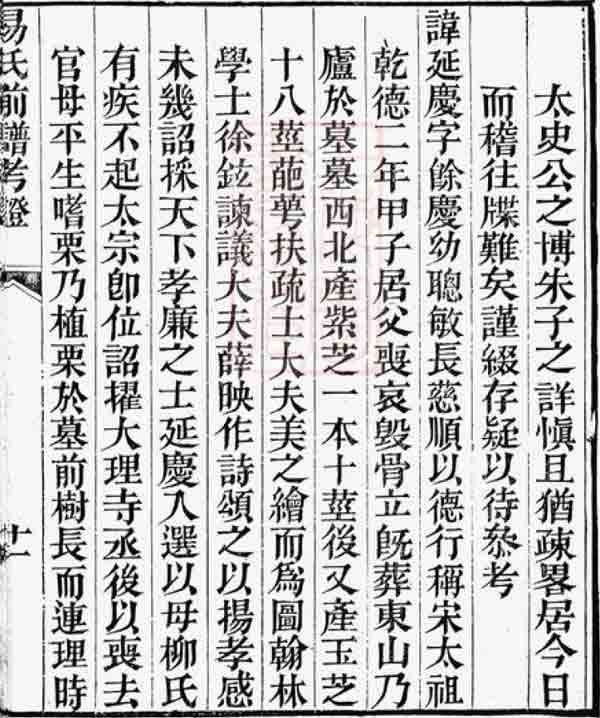 太史公之博朱子之詳慎且猶疎畧居今日
而稽往牒難矣謹綴存疑以待叅考
諱延慶字餘慶幼聰敏長慈順以德行稱宋太祖
乾德二年甲子居父喪哀毀骨立旣葬東山乃
廬於墓墓西北產紫芝一本十莖後又產玉芝
十八莖葩萼扶疏士大夫美之繪而為圖翰林
學士徐鉉諫議大夫薛映作詩頌之以揚孝感
未幾詔採天下孝廉之士延慶入選以母柳氏
有疾不起太宗卽位詔擢大理寺丞後以喪去
官母平生嗜栗乃植栗於墓前樹長而連理時
易氏前譜考證
十一